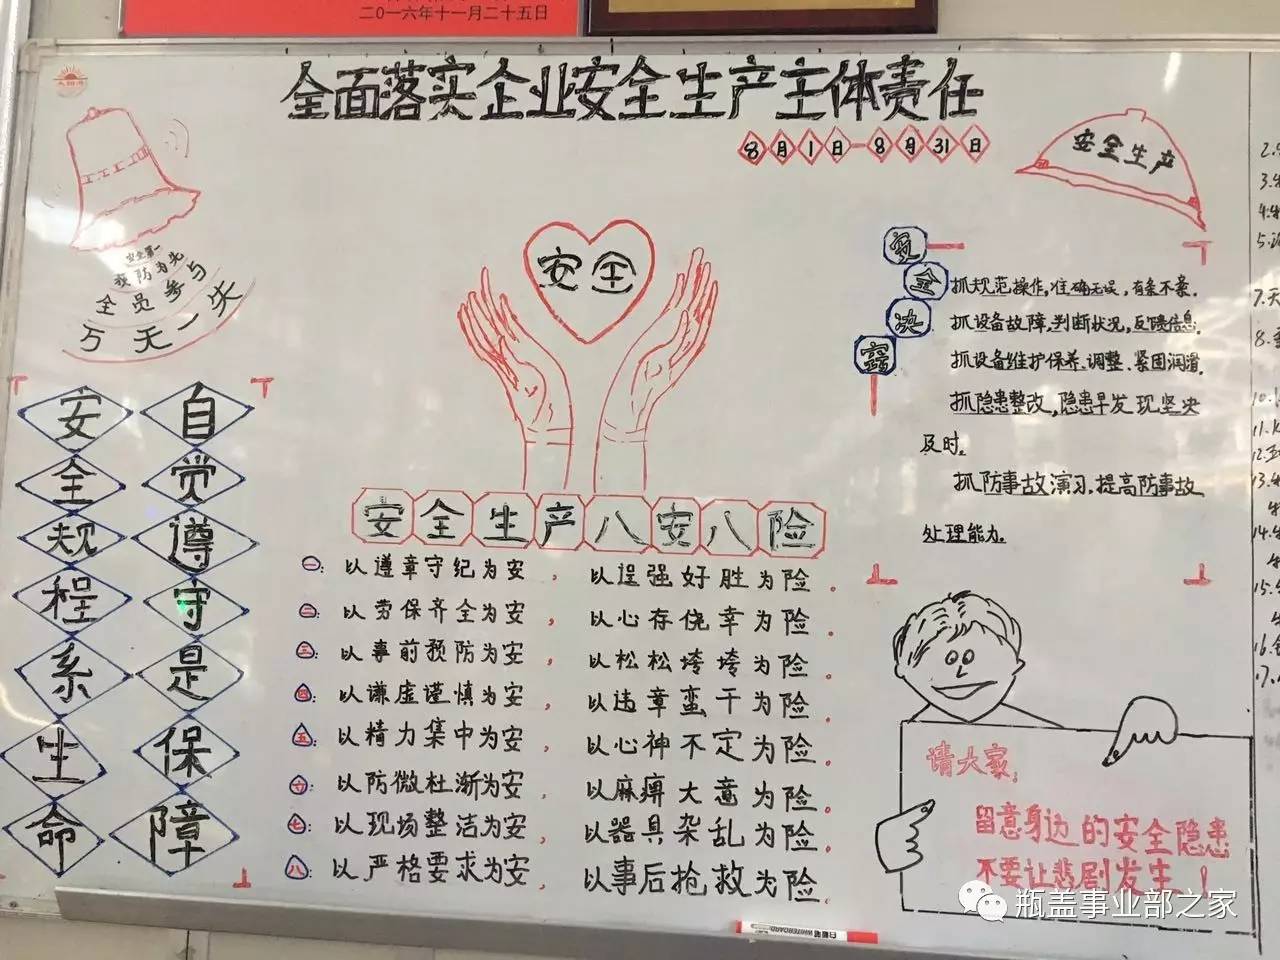 二〇一六年十一月二十五日
全面落实企业安全生产主体责任
8月1日-8月31日
安全生产
安全第一
预防为先
全员参与
万无一失
安全
安全决窍
抓规范操作,准确无误,有条不紊.
抓设备故障,判断状况,反馈信息.
抓设备维护保养、调整、紧固润滑.
抓隐患整改,隐患早发现坚决
及时。
抓防事故演习,提高防事故
处理能力.
安全规程系生命
自觉遵守是保障
安全生产八安八险
一:以遵章守纪为安,以逞强好胜为险.
二:以劳保齐全为安,以心存侥幸为险.
三:以事前预防为安,以松松垮垮为险.
四:以谦虚谨慎为安,以违章蛮干为险.
五:以精力集中为安,以心神不定为险.
六:以防微杜渐为安,以麻痹大意为险.
七:以现场整洁为安,以器具杂乱为险.
八:以严格要求为安,以事后抢救为险.
请大家:
留意身边的安全隐患
不要让悲剧发生!
瓶盖事业部之家
WHITEBOARD